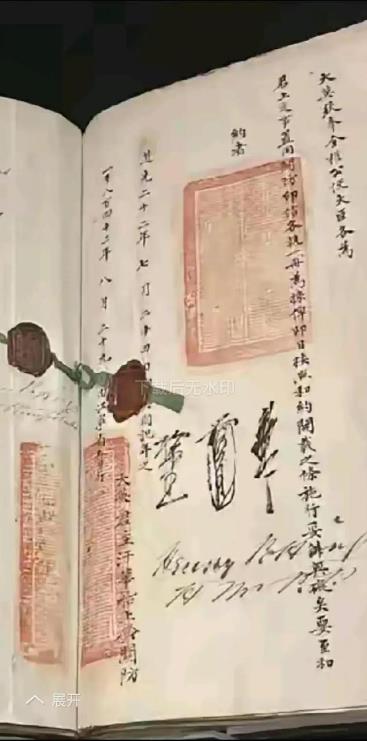 大英欽奉全權公使大臣各為
君上定事蓋用關防印信各執一冊為據俾即日按照和約開載之條施行妥辦無礙矣要至和
約者
道光二十二年七月二十四日國記年之
一千八百四十二年八月二十九
大英君主汗華船上鈐關防
Henry Pottinger
下载后无水印
展开